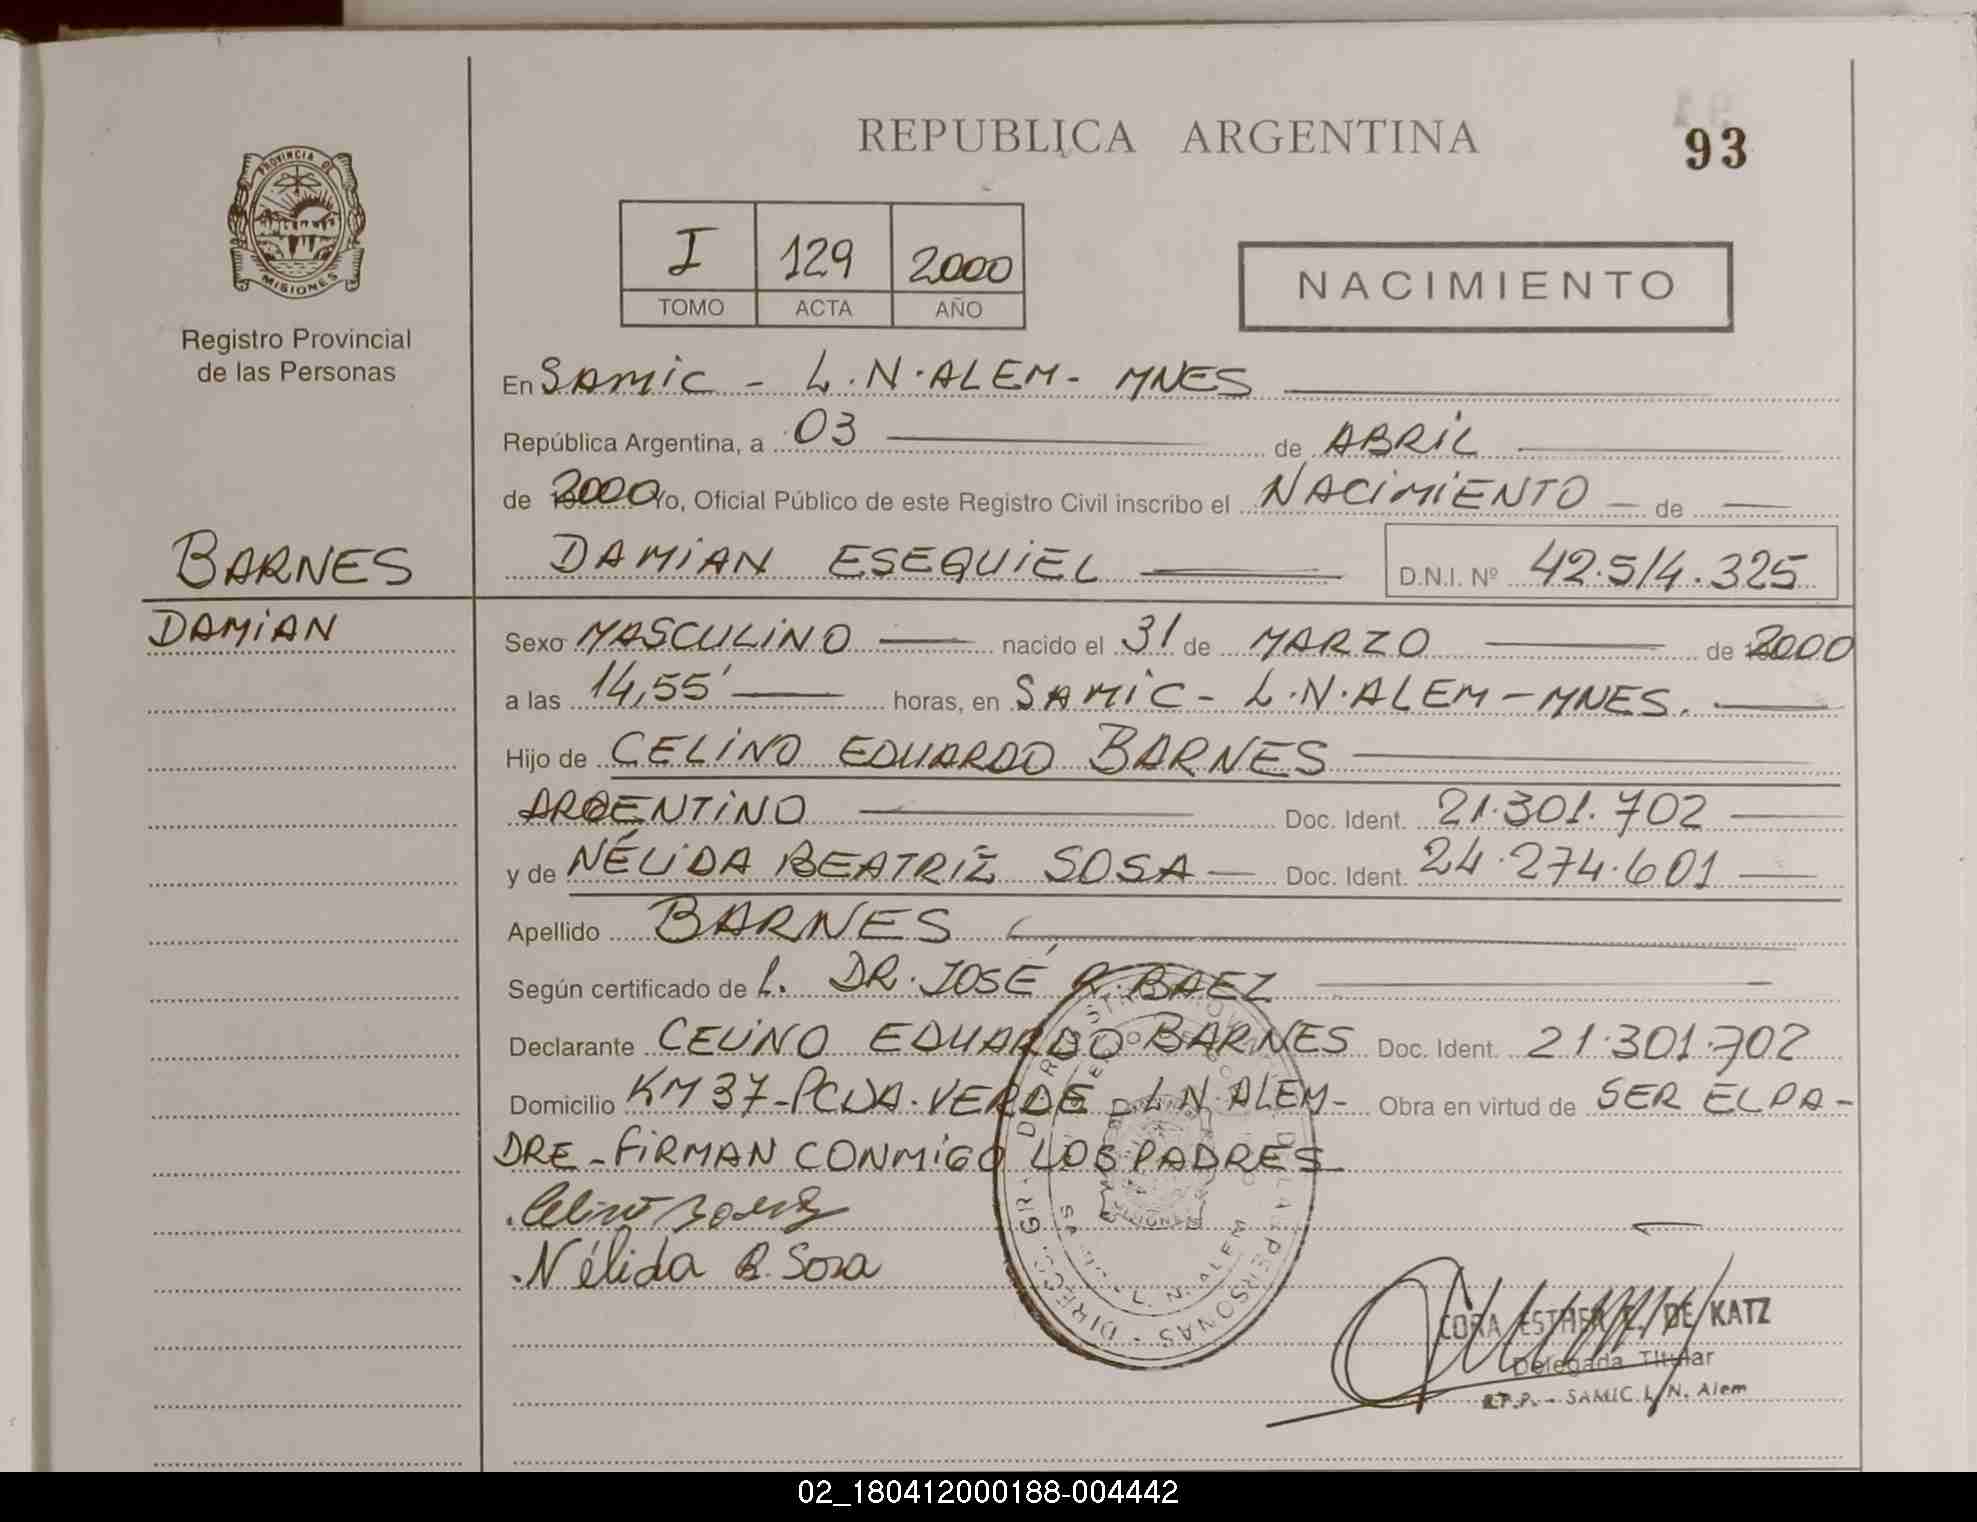 REPUBLICA ARGENTINA
93
PROVINCIA DE
MISIONES
Registro Provincial
de las Personas
I 129 2000
TOMO ACTA AÑO
NACIMIENTO
En SAMIC - L.N.ALEM- MNES
República Argentina, a 03 de ABRIL
de 2000 Yo, Oficial Público de este Registro Civil inscribo el NACIMIENTO de
BARNES
DAMIAN ESEQUIEL D.N.I. Nº 42.514.325
DAMIAN
Sexo MASCULINO nacido el 31 de MARZO de 2000
a las 14,55' horas, en SAMIC - L.N.ALEM - MNES.
Hijo de CELINO EDUARDO BARNES
ARGENTINO Doc. Ident. 21.301.702
y de NÉLIDA BEATRIZ SOSA Doc. Ident. 24.274.601
Apellido BARNES
Según certificado de L. DR. JOSÉ R. BAEZ
Declarante CELINO EDUARDO BARNES Doc. Ident. 21.301.702
Domicilio KM 37-PCIA.VERDE - L.N.ALEM- Obra en virtud de SER EL PA-
DRE - FIRMAN CONMIGO LOS PADRES
Nélida B. Sosa
CORA ESTHER E. DE KATZ
Delegada Titular
R.P.P. - SAMIC L.N. Alem
02_180412000188-004442